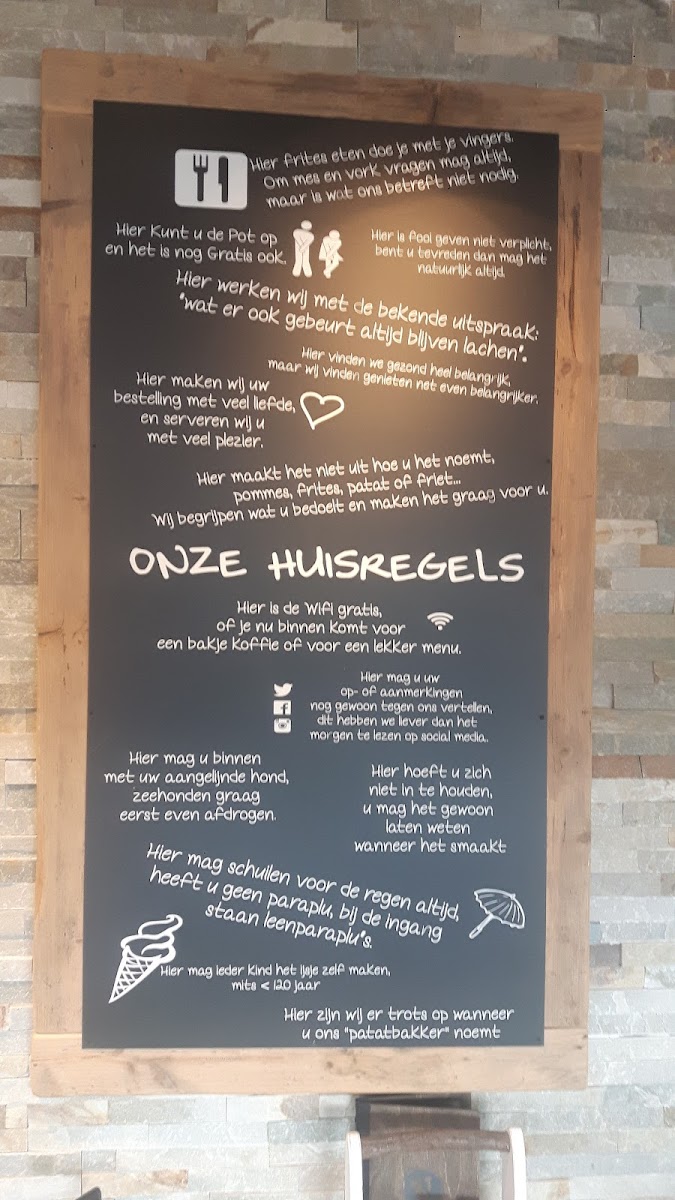 Hier frites eten doe je met je vingers.
Om mes en vork vragen mag altijd,
maar is wat ons betreft niet nodig.
Hier Kunt u de Pot op
en het is nog Gratis ook.
Hier is fooi geven niet verplicht,
bent u tevreden dan mag het
natuurlijk altijd.
Hier werken wij met de bekende uitspraak:
"wat er ook gebeurt altijd blijven lachen".
Hier vinden we gezond heel belangrijk,
maar wij vinden genieten net even belangrijker.
Hier maken wij uw
bestelling met veel liefde,
en serveren wij u
met veel plezier.
Hier maakt het niet uit hoe u het noemt,
pommes, frites, patat of friet...
Wij begrijpen wat u bedoelt en maken het graag voor u.
ONZE HUISREGELS
Hier is de Wifi gratis,
of je nu binnen komt voor
een bakje koffie of voor een lekker menu.
Hier mag u uw
op- of aanmerkingen
nog gewoon tegen ons vertellen,
dit hebben we liever dan het
morgen te lezen op social media.
Hier mag u binnen
met uw aangelijnde hond,
zeehonden graag
eerst even afdrogen.
Hier hoeft u zich
niet in te houden,
u mag het gewoon
laten weten
wanneer het smaakt
Hier mag schuilen voor de regen altijd,
heeft u geen paraplu, bij de ingang
staan leenparaplu"s.
Hier mag ieder kind het ijsje zelf maken,
mits < 120 jaar
Hier zijn wij er trots op wanneer
u ons "patatbakker" noemt